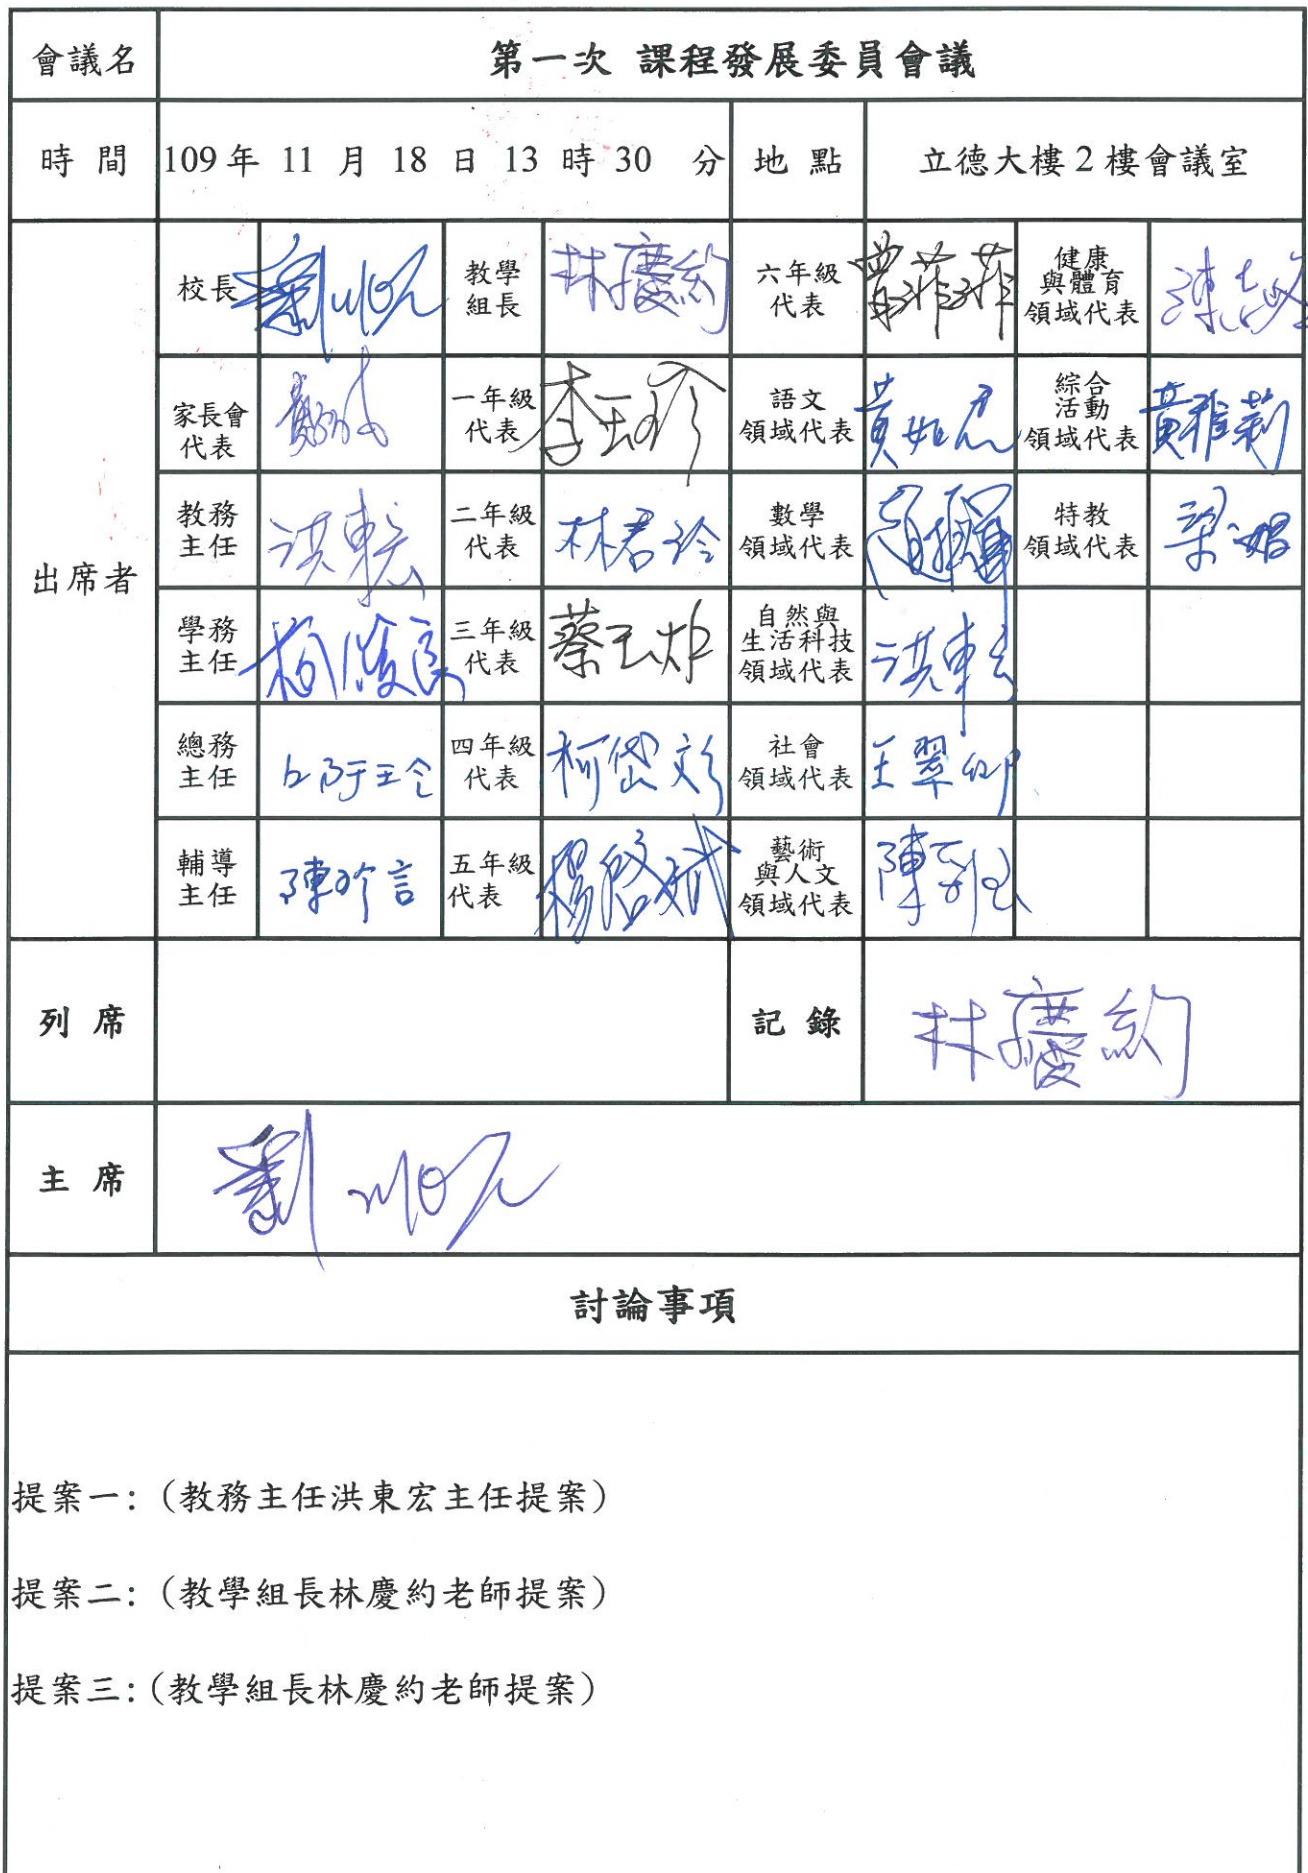 會議名 第一次 課程發展委員會議
時 間 109年 11 月 18 日 13 時 30 分 地 點 立德大樓2樓會議室
出席者
校長 教學組長 林慶約 六年級代表 曾菲菲 健康與體育領域代表
家長會代表 一年級代表 李玉珍 語文領域代表 黃如君 綜合活動領域代表 黃雅莉
教務主任 洪東宏 二年級代表 林君玲 數學領域代表 特教領域代表
學務主任 三年級代表 蔡玉炷 自然與生活科技領域代表 洪東宏
總務主任 四年級代表 柯岱彣 社會領域代表 王翠卿
輔導主任 五年級代表 楊啓斌 藝術與人文領域代表
列 席 記 錄 林慶約
主 席
討論事項
提案一:（教務主任洪東宏主任提案）
提案二:（教學組長林慶約老師提案）
提案三:（教學組長林慶約老師提案）